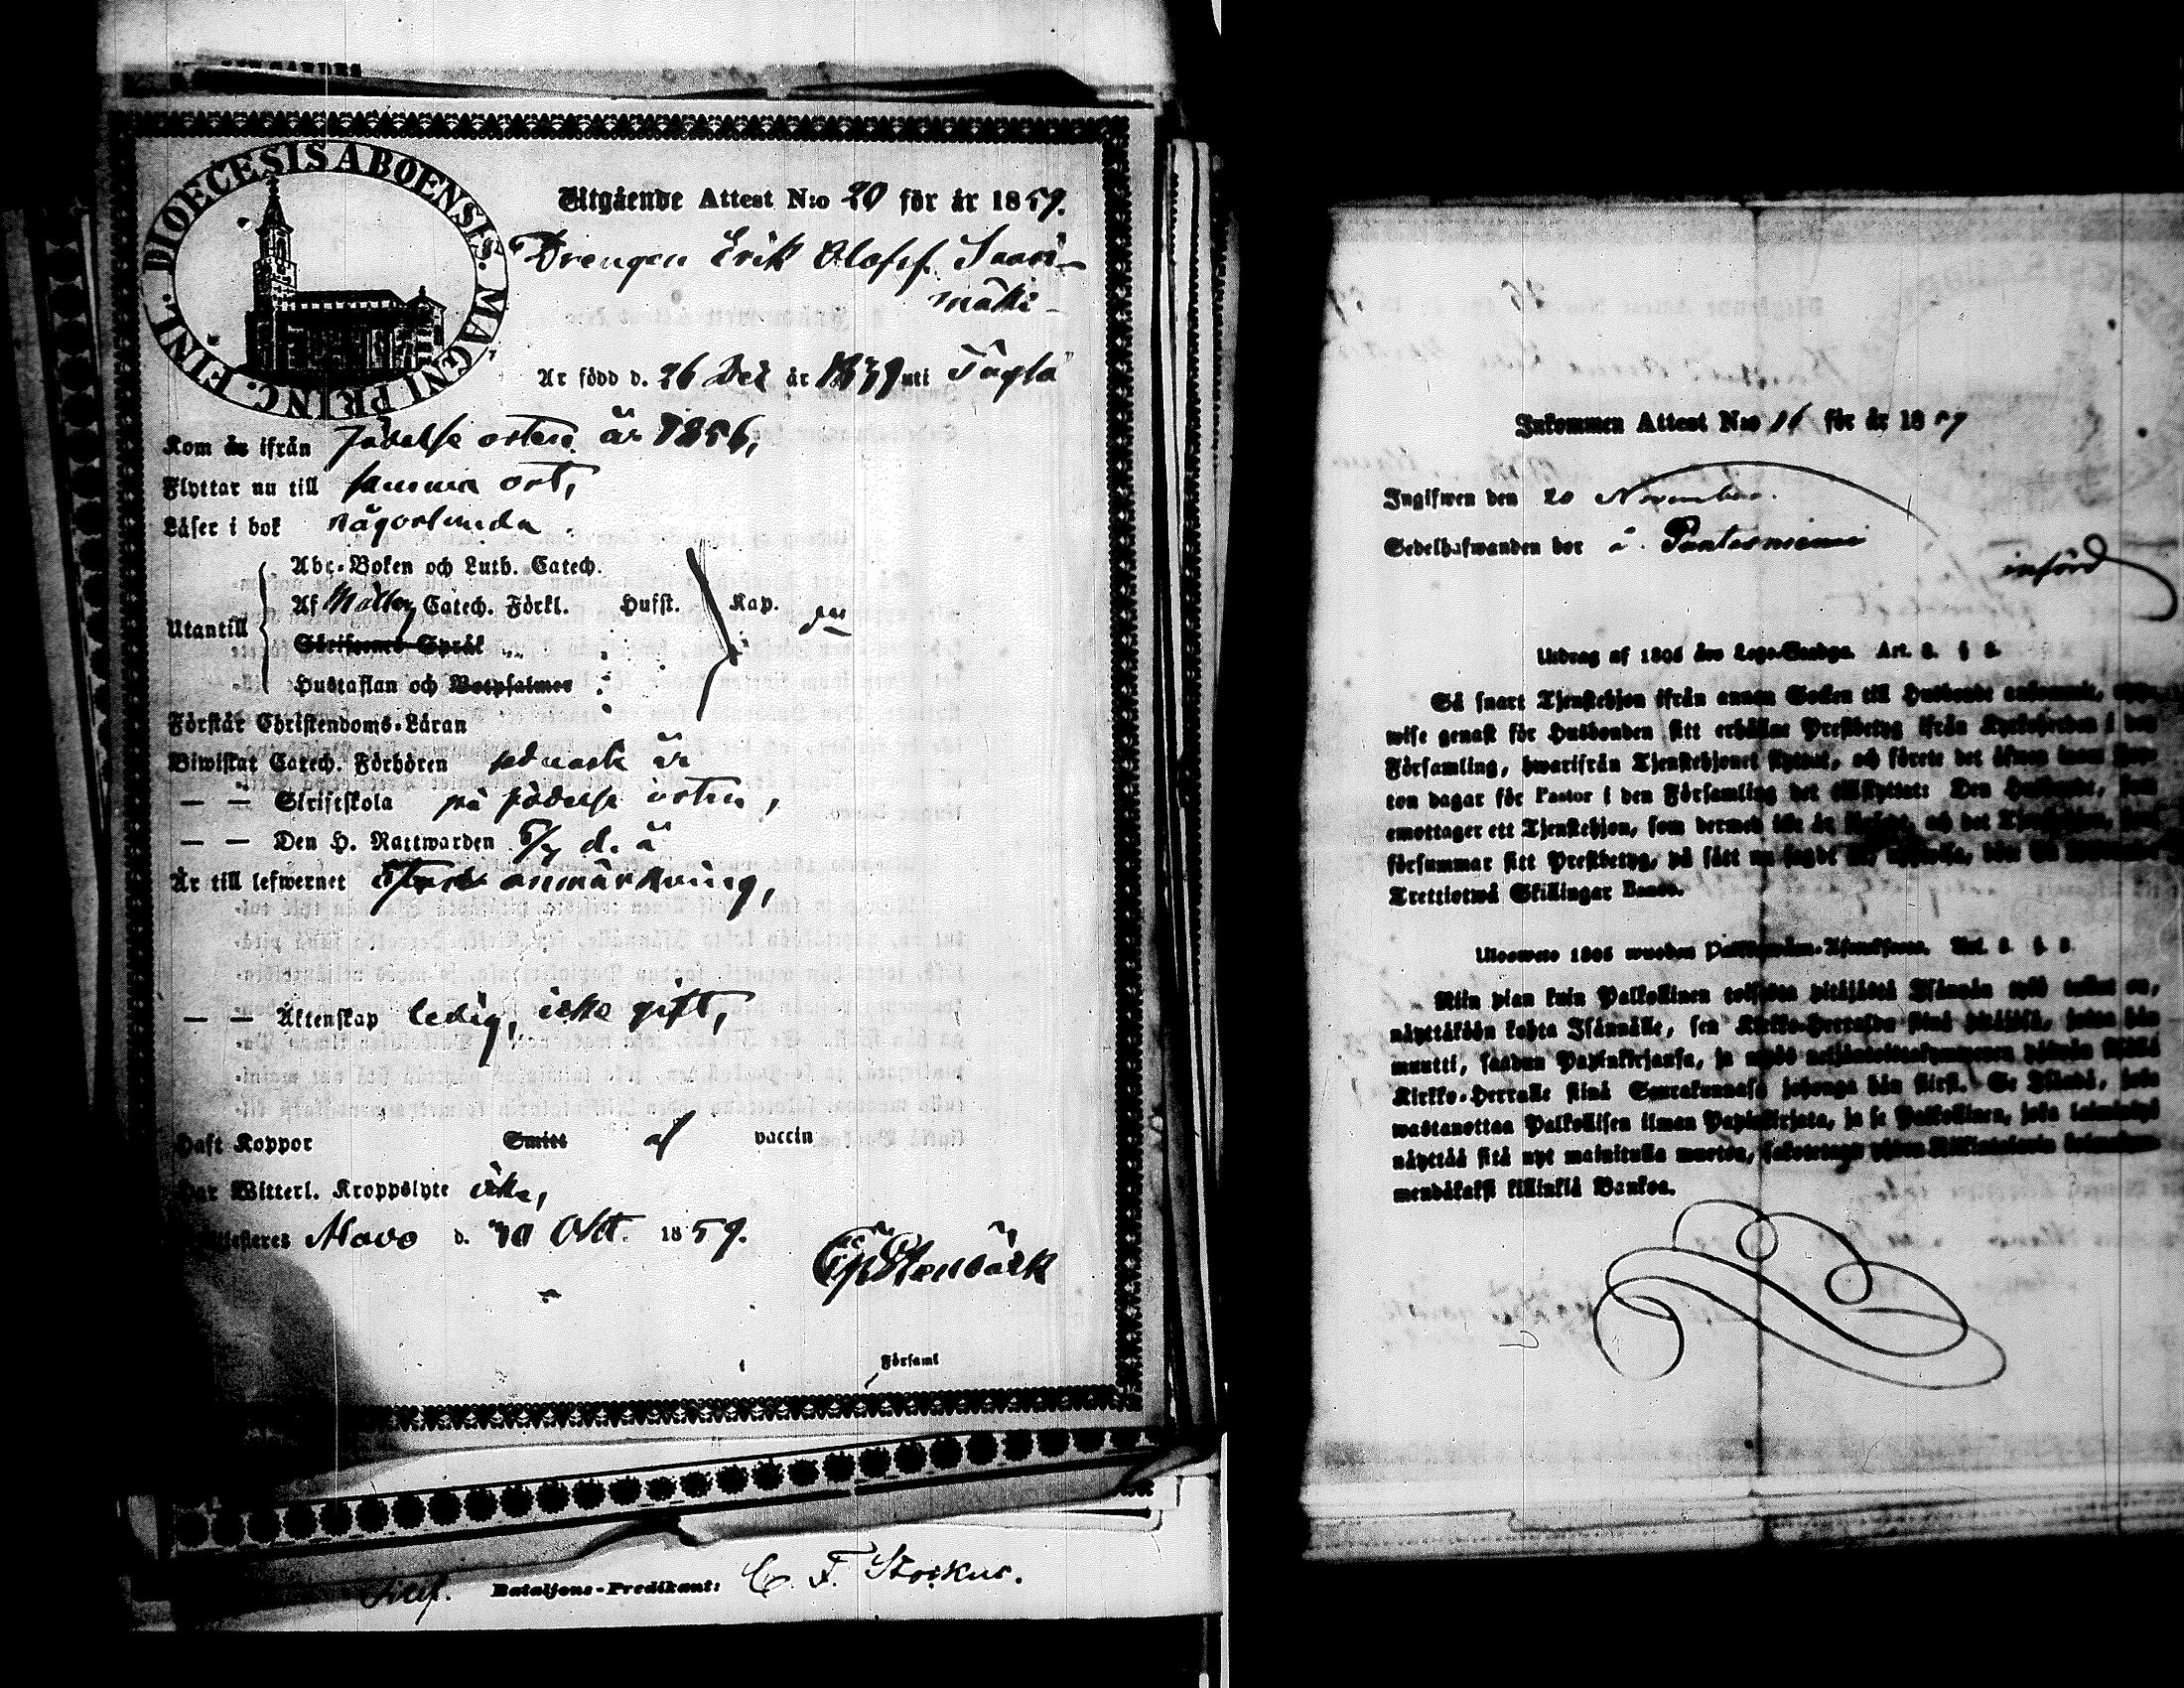 DIOECESIS ABOENSIS. MAGNI PRINC. FINL.
Utgående Attest N:o 20 för år 1859.
Drengen Erik Olofsf. Saari-
mäki
Är född d. 26 Dec är 1839 uti Töfsö
Kom år ifrån födelse orten år 1856,
Flyttar nu till samma ort,
Läser i bok någorlunda.
Utantill
Abc-Boken och Luth. Catech.
Af Catech. Förkl. Husst. Kap.
Skriftenes Språk
Hustaflan och Botpsalmer
Förstår Christendoms-Läran
Biwistat Catech. Förhören sednaste år
— — Skriftskola på födelse orten,
— — Den H. Nattwarden d. å
Är till lefwernet utan anmärkning,
— — Äktenskap ledig, icke gift,
Haft Koppor Smitt af vaccin
Har Witterl. Kroppslyte icke,
Alavo d. 30 Okt. 1859.
Stenbäck
Församl
Bataljons-Predikant: C. F. Storkus.
Inkommen Attest N:o 16 för år 1859
Ingifwen den 20 November.
Sedelhafwanden bor å Pentesniemi
införd
Utdrag af 1805 års Lego-Stadga. Art. 3. § 8.
Så snart Tjenstehjon ifrån annan Socken till Husbonde ankommit, upp-
wise genast för Husbonden sitt erhållne Prestbetyg ifrån Kyrkoherden i den
Församling, hwarifrån Tjenstehjonet flyttat, och förete det äfwen inom fjor-
ton dagar för Pastor i den Församling det tillflyttat: Den Husbonde, som
emottager ett Tjenstehjon, som dermed icke är försedt, och det Tjenstehjon, som
försummar sitt Prestbetyg, på sätt nu sagdt är, uppwisa, böte
Trettiotwå Skillingar Banco.
Ulosweto 1805 wuoden Palkollisten-Asetuksesta. Art. 3. §. 8.
Niin pian kuin Palkollinen toisesta pitäjästä Isännän tykö tullut on,
näyttäköön kohta Isännälle, sen Kirkko-Herralda siinä pitäjässä, josta hän
muutti, saadun Papinkirjansa, ja myös neljäntoistakymmenen päiwän sisällä
Kirkko-Herralle siinä Seurakunnasa johonga hän siirsi. Se Isändä, joka
wastanottaa Palkollisen ilman Papinkirjata, ja se Palkollinen, joka laiminlyö
näyttää sitä nyt mainitulla muotoa, sakotetaan
mendäkaksi killinkiä Bankoa.